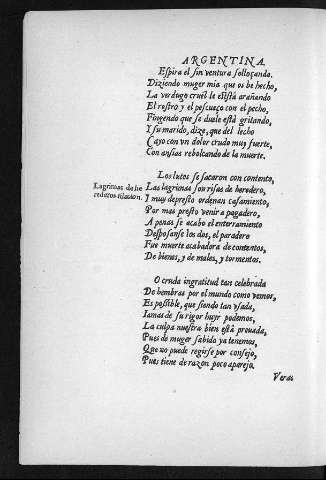 ARGENTINA.
Espira el sin ventura solloçando.
Diziendo muger mia que os he hecho,
La verdugo cruël le está arañando
El rostro y el pescueço con el pecho,
Fingendo que se duele está gritando,
Y su marido, dize, que del lecho
Cayo con vn dolor crudo muy fuerte,
Con ansias rebolcando de la muerte.
Los lutos se sacaron con contento,
Lagrimas de he
rederos risa son.
Las lagrimas son risas de heredero,
I muy depresto ordenan casamiento,
Por mas presto venir a pagadero,
A penas se acabo el enterramiento
Desposanse los dos, el paradero
Fue muerte acabadora de contentos,
De bienes, y de males, y tormentos.
O cruda ingratitud tan celebrada
De hembras por el mundo como vemos,
Es possible, que siendo tan vsada,
Iamas de su rigor huyr podemos,
La culpa nuestra bien está prouada,
Pues de muger sabido ya tenemos,
Que no puede regirse por consejo,
Pues tiene de razon poco aparejo.
Verás